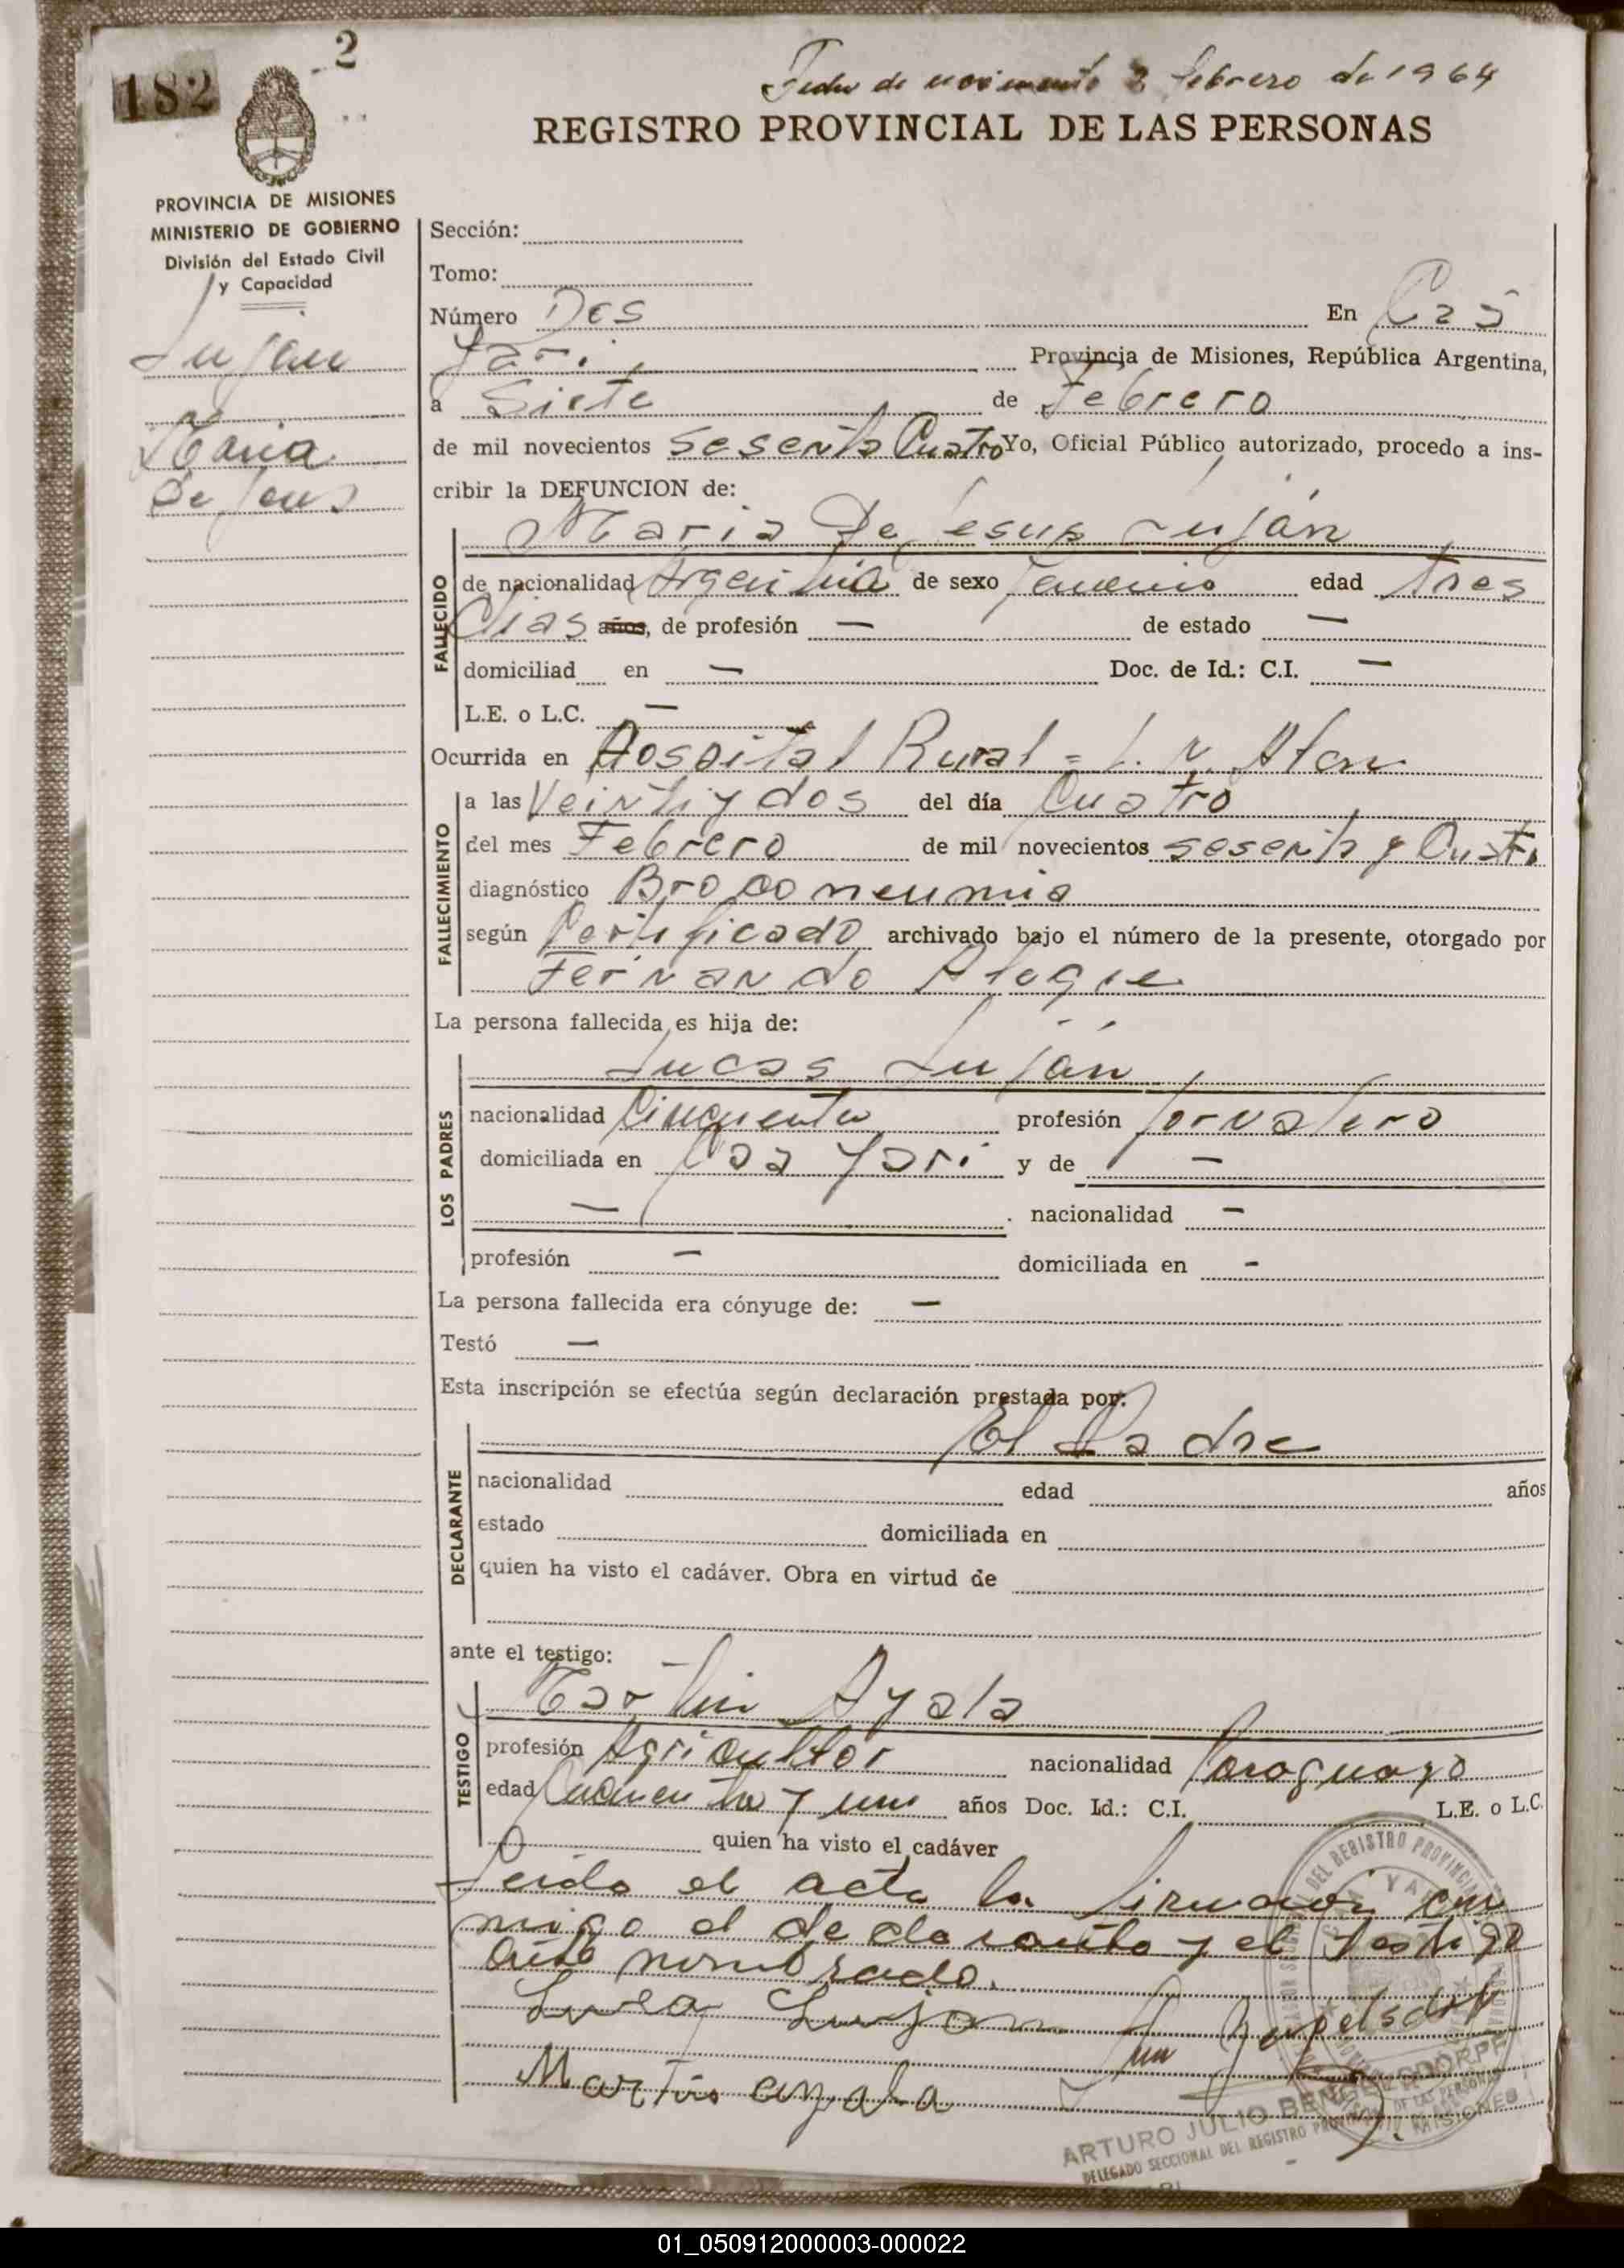 2
182
Fecha de nacimiento 2 febrero de 1964
REGISTRO PROVINCIAL DE LAS PERSONAS
PROVINCIA DE MISIONES
MINISTERIO DE GOBIERNO
División del Estado Civil
y Capacidad
Lujan
Maria
de Jesus
Sección:
Tomo:
Número Dos En Caá
Yari Provincia de Misiones, República Argentina,
a Siete de Febrero
de mil novecientos Sesenta Cuatro Yo, Oficial Público autorizado, procedo a ins-
cribir la DEFUNCION de:
Maria De Jesus Luján
FALLECIDO
de nacionalidad Argentina de sexo femenino edad tres
dias años, de profesión — de estado —
domiciliad en — Doc. de Id.: C.I. —
L.E. o L.C. —
Ocurrida en Hospital Rural = L. N. Alen
FALLECIMIENTO
a las Veinti y dos del día Cuatro
del mes Febrero de mil novecientos sesenta y Cuatro
diagnóstico Broconeumia
según Certificado archivado bajo el número de la presente, otorgado por
Fernando
La persona fallecida es hija de:
LOS PADRES
Lucas Luján
nacionalidad Cinquenta profesión Jornalero
domiciliada en Caa Yari y de —
— nacionalidad —
profesión — domiciliada en -
La persona fallecida era cónyuge de: —
Testó —
Esta inscripción se efectúa según declaración prestada por:
El Padre
DECLARANTE
nacionalidad edad años
estado domiciliada en
quien ha visto el cadáver. Obra en virtud de
ante el testigo:
TESTIGO
Martin Ayala
profesión Agricultor nacionalidad Paraguayo
edad y uno años Doc. Id.: C.I. L.E. o L.C.
quien ha visto el cadáver
Leida el acta la firman con
migo el declarante y el testigo
ante nombrado.
Luca Lujan
Martin ayala
ARTURO JULIO BENGELSDORFF
DELEGADO SECCIONAL DEL REGISTRO PROVINCIAL DE LAS PERSONAS
MISIONES
01_050912000003-000022